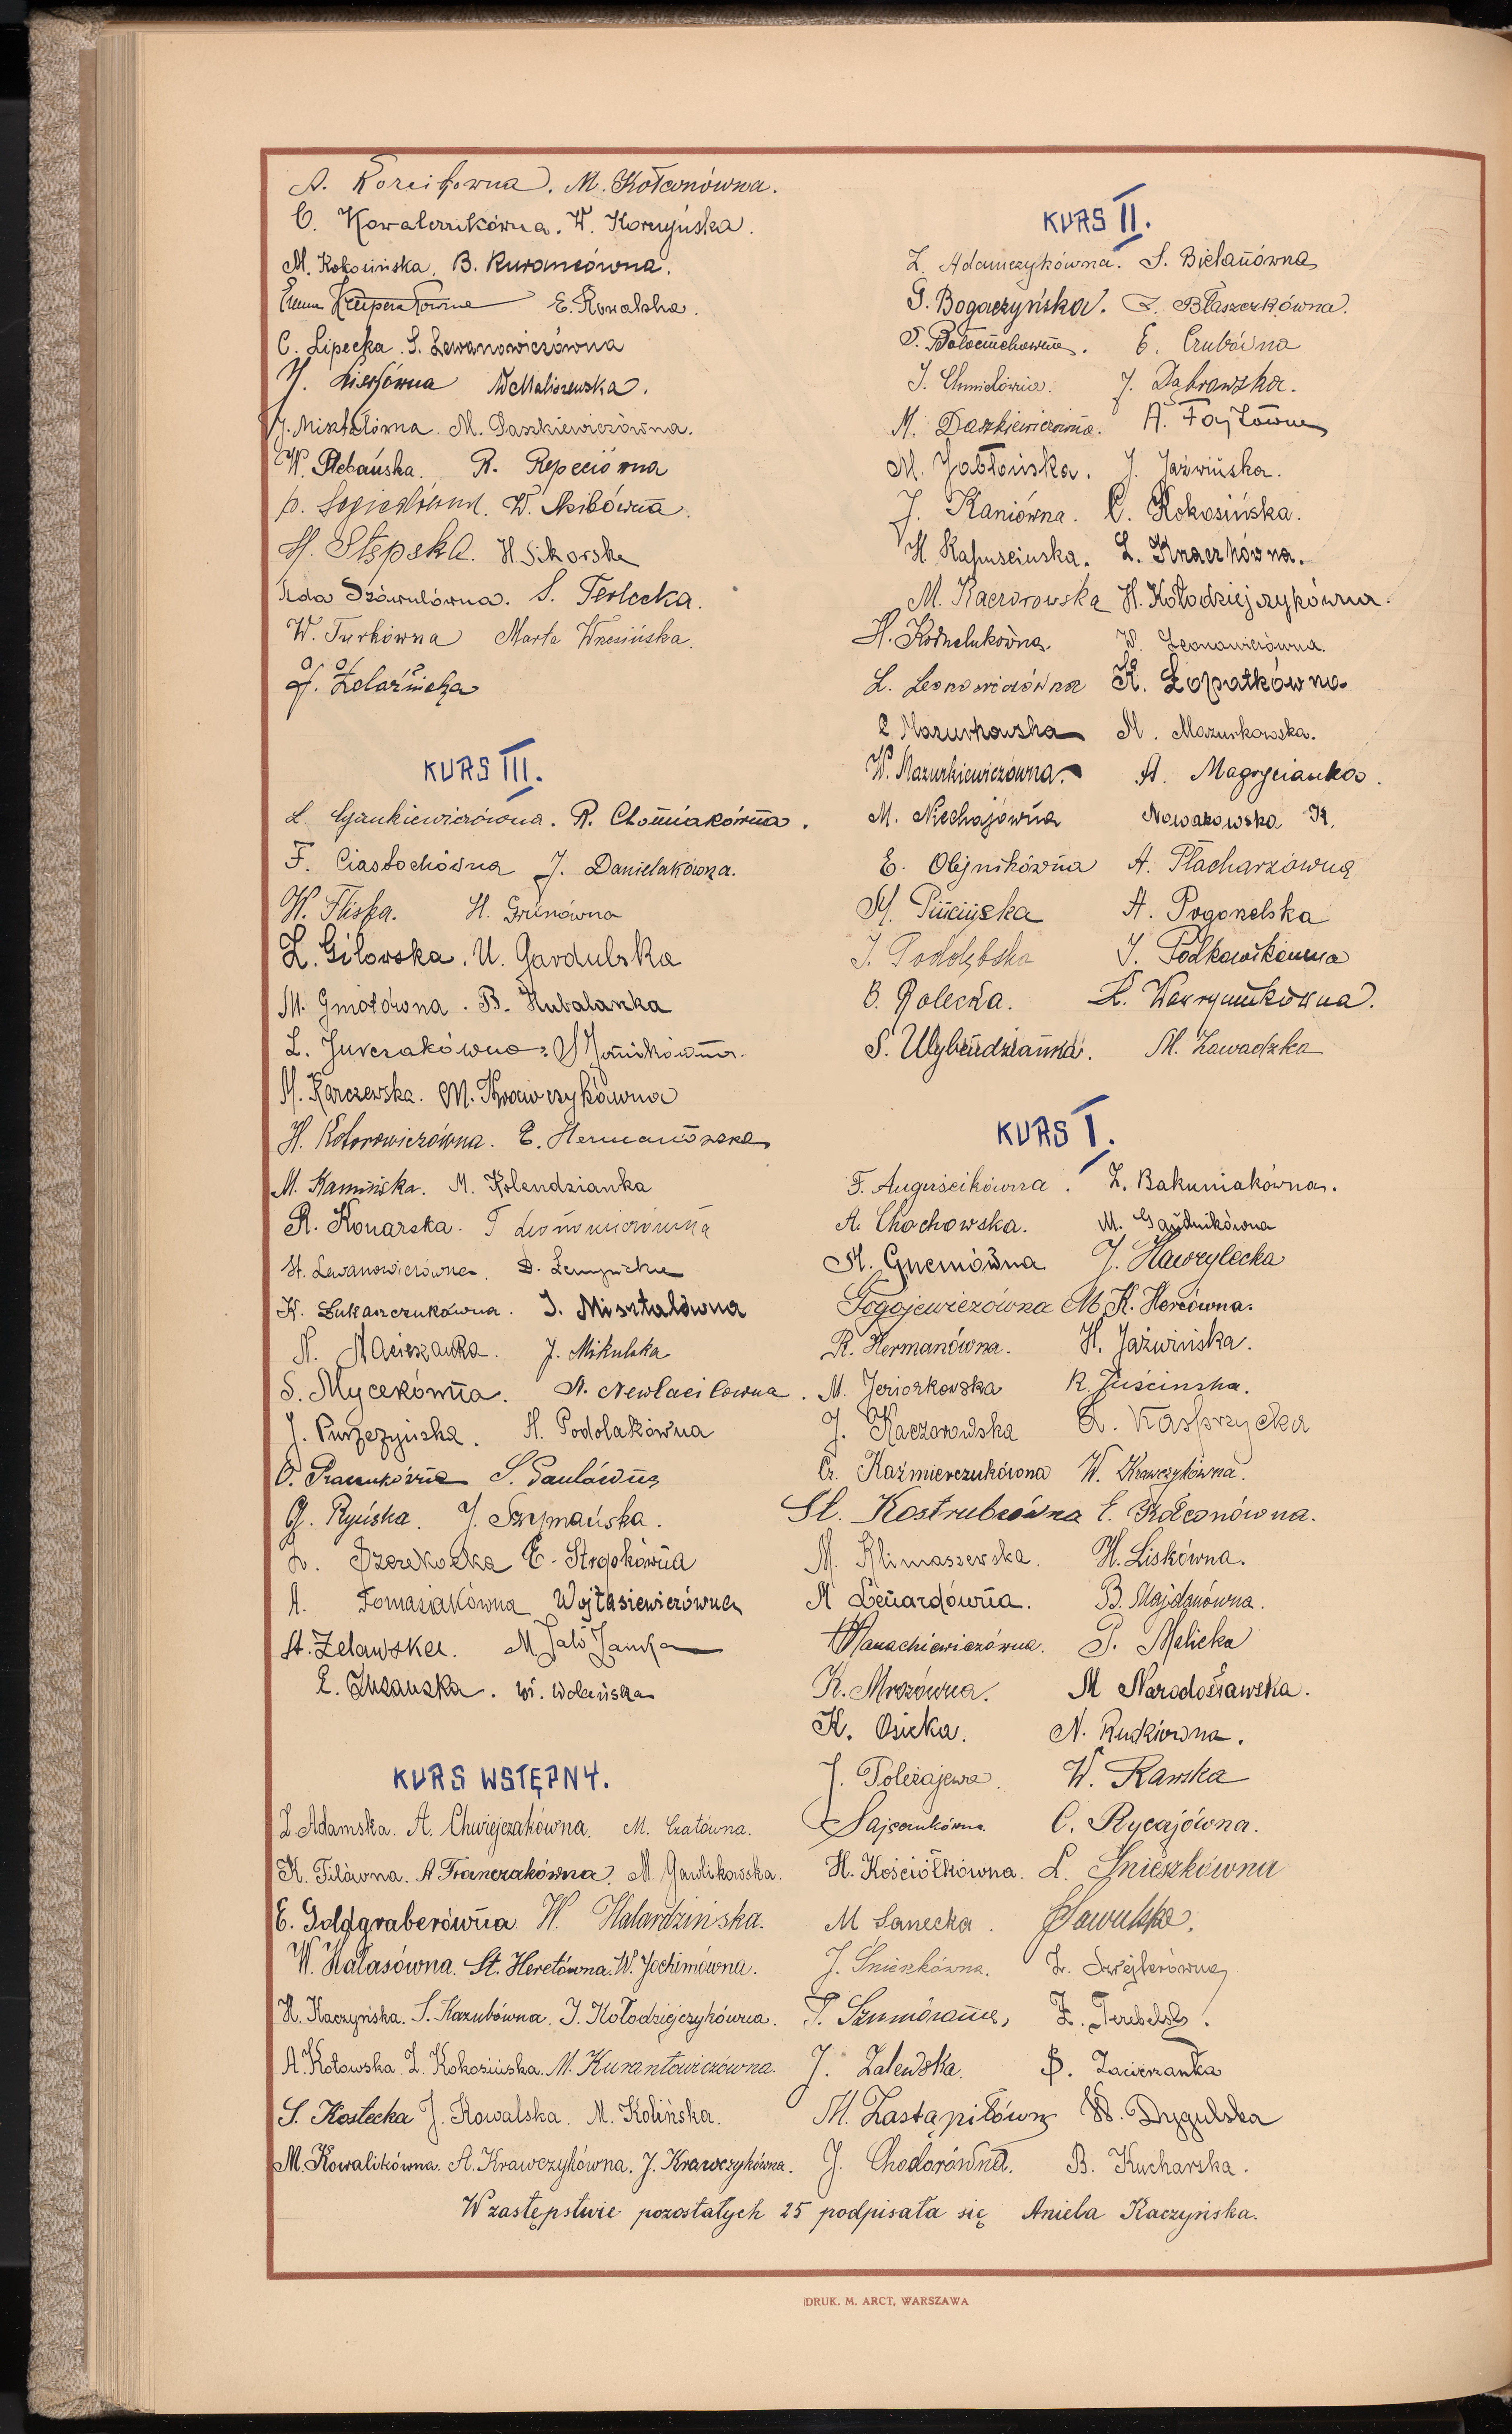 M. Kołtonówna.
C. Kowalczukówna. W. Korzyńska.
M. Kokosińska. B. Kurancówna.
E. Kowalska.
C. Lipecka. S. Lewanowiczówna
W. Maliszewska.
J. Misztalówna. M. Daszkiewiczówna.
W. Plebańska. R. Repeciówna
H. Stępska. H. Sikorska
S. Terlecka.
W. Turkówna Marta Wrzesińska.
KURS III.
R. Chomiakówna.
F. Ciastochówna J. Danielakówna.
W. Fliska. H. Grünówna
Z. Gilowska. U. Gardulska
M. Gmotówna. B. Hubalanka
L. Jurczakówna.
M. Karczewska. M. Krawczykówna
H. Kotorowiczówna. E. Hermanówna
M. Kamińska. M. Kolendzianka
R. Konarska.
St. Lewanowiczówna.
K. Łukaszczukówna. J. Misztalówna
N. Macieszanka. J. Mikulska
S. Mycekówna.
H. Podolakówna
G. Ryńska. J. Szymańska.
E. Stropkówna
A. Tomasiakówna Wojtasiewiczówna
St. Zelawska.
W. Wolańska
KURS WSTĘPNY.
Z. Adamska. A. Chwiejczakówna. M. Czatówna.
K. Filówna. A. Franczakówna. M. Gawlikowska.
E. Goldgraberówna W. Halardzińska.
W. Hałasówna. St. Heretówna. W. Jochimówna.
H. Kaczyńska. S. Kazubówna. J. Kołodziejczykówna.
A. Kotowska. Z. Kokosińska. M. Kurantowiczówna.
S. Kostecka J. Kowalska. M. Kolińska.
M. Kowalikówna. A. Krawczykówna. J. Krawczykówna.
KURS II.
Z. Adamczykówna. S. Bielanówna
G. Bogaczyńska. Z. Błaszczkówna.
E. Czubówna
J. Dąbrowska.
M. Daszkiewiczówna. A. Fajtówna
M. Jabłońska. J. Jaźwińska.
J. Kaniówna. C. Kokosińska.
H. Kapuścinska. L. Knaczkówna.
M. Kaczorowska H. Kołodziejczykówna.
W. Leonowiczówna.
L. Leonowiczówna K. Łopatkówna
Mazurkowska M. Mazurkowska.
W. Mazurkiewiczówna. A. Magrycianka.
M. Niechajówna Nowakowska K.
E. Olejnikówna A. Płacharzówna
A. Pogonelska
J. Podolębska J. Podkowikówna
B. Rolecka.
S. Wybrńdzianka. M. Zawadzka
KURS I.
F. Auguścikówna. Z. Bakuniakówna.
A. Chochowska.
J. Hawrylecka
Gogojewiczówna M. K. Hercówna.
R. Hermanówna. H. Jaźwińska.
M. Jeziorkowska K. Juścinska.
J. Kaczorowska A. Kasprzycka
Cz. Kaźmierczukówna W. Krawczykówna.
St. Kostrubcówna E. Kołconówna.
M. Klimaszewska. H. Liskówna.
M. Lenardówna. B. Majdanówna.
P. Malicka
K. Mrozówna. M. Narodosławska.
K. Osicka. N. Rudkiówna.
J. Poleżajewa. W. Rawska
Sajczukówna. C. Rycajówna.
H. Kościółkówna. L. Śnieszkówna
M. Sanecka. Sawulska.
J. Śnieszkówna.
J. Zalewska. Zawerzanka
M. Zastąpiłówna W. Drygulska
J. Chodorówna. B. Kucharska.
W zastępstwie pozostałych 25 podpisała się Aniela Kaczyńska.
DRUK. M. ARCT, WARSZAWA